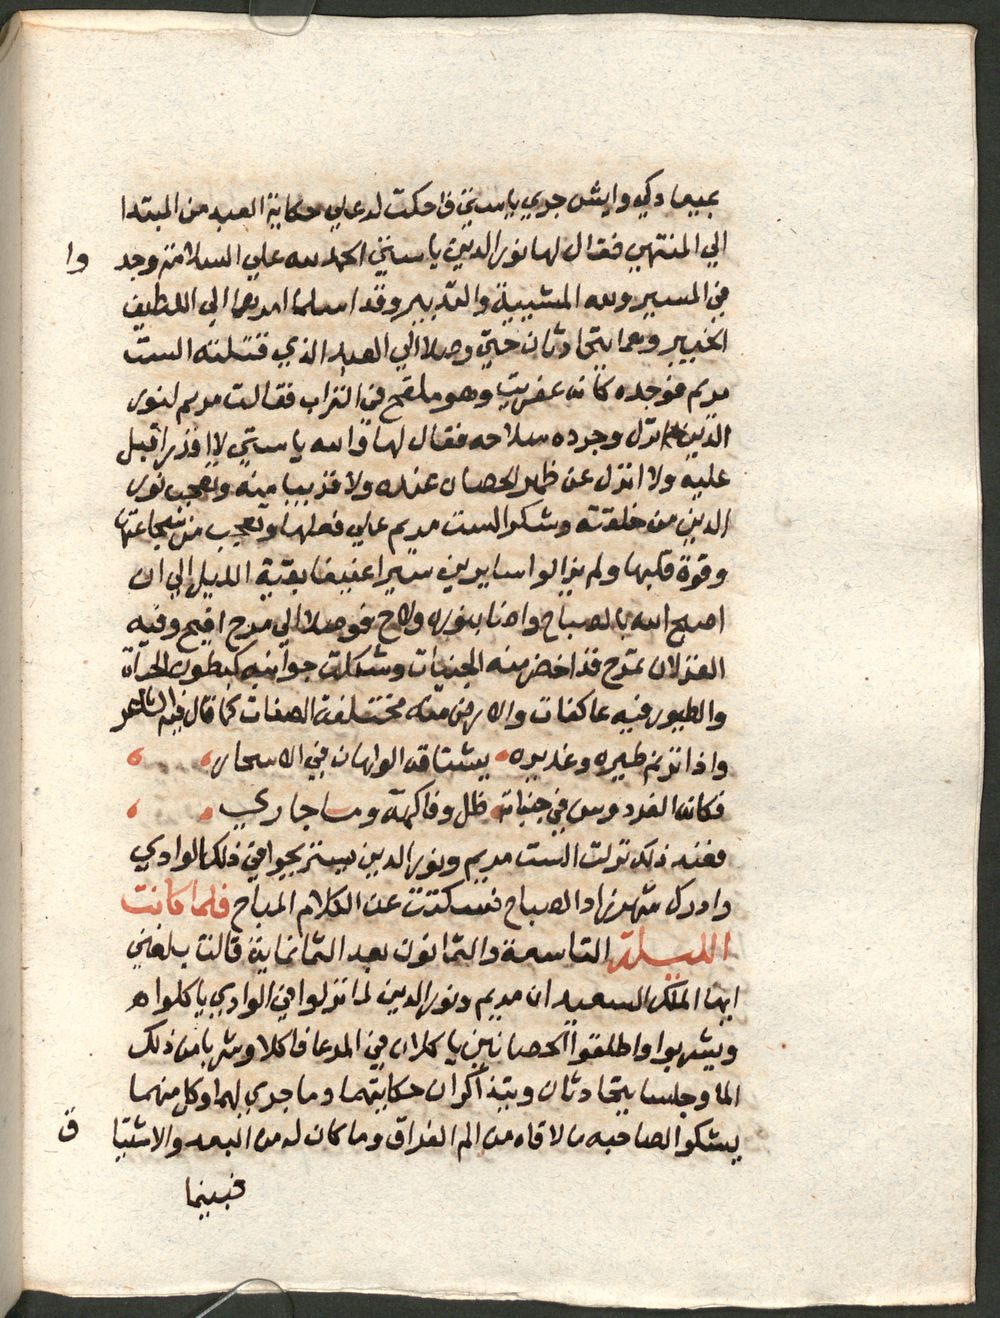 بميعادكي وايش جري ياستي فاحكت له علي حكاية العبد من المبتدا
الي المنتهي فقال لها نور الدين ياستي الحمد لله علي السلامة وجد وا
في المسير ولله المشيية والتدبير وقد اسلما امرهما الي اللطيف
الخبير وهما يتحادثان حتي وصلا الي العبد الذي قتلته الست
مريم فوجده كانه عفريت وهو ملقح في التراب فقالت مريم لنور
الدين انزل وجرده سلاحه فقال لها والله ياستي لا اقدر اقبل
عليه ولا انزل عن ظهر الحصان عنده ولا قريبا منه وتعجب نور
الدين من خلقته وشكر الست مريم علي فعلها وتعجب من شجاعتها
وقوة قلبها ولم يزالوا سايرين سيرا عنيفا بقية الليل الي ان
اصبح الله بالصباح واضا بنوره ولاح فوصلا الي مرج افيح وفيه
الغزلان تمرح قد اخضر منه الجنبات وشكلت جوانبه كبطون الحيات
والطيور فيه عاكفات والارض منه مختلفة الصفات كما قال فيه الشاعر
واذا ترنم طيره وغديره يشتاقه الولهان في الاسحار
فكانه الفردوس في جنباته ظل وفاكهة وما جاري
فعند ذلك نزلت الست مريم ونور الدين يستريحوا في ذلك الوادي
وادرك شهرزاد الصباح فسكتت عن الكلام المباح فلما كانت
الليلة التاسعة والثمانون بعد الثمانماية قالت بلغني
ايها الملك السعيد ان مريم ونور الدين لما نزلوا في الوادي ياكلوا
ويشربوا واطلقوا الحصانين ياكلان في المرعا فاكلا وشربا من ذلك
الما وجلسا يتحادثان ويتذاكران حكايتهما وما جري لهما وكل منهما
يشكوا لصاحبه ما لاقاه من الم الفراق وما كان له من البعد والاشتيا ق
فبينما